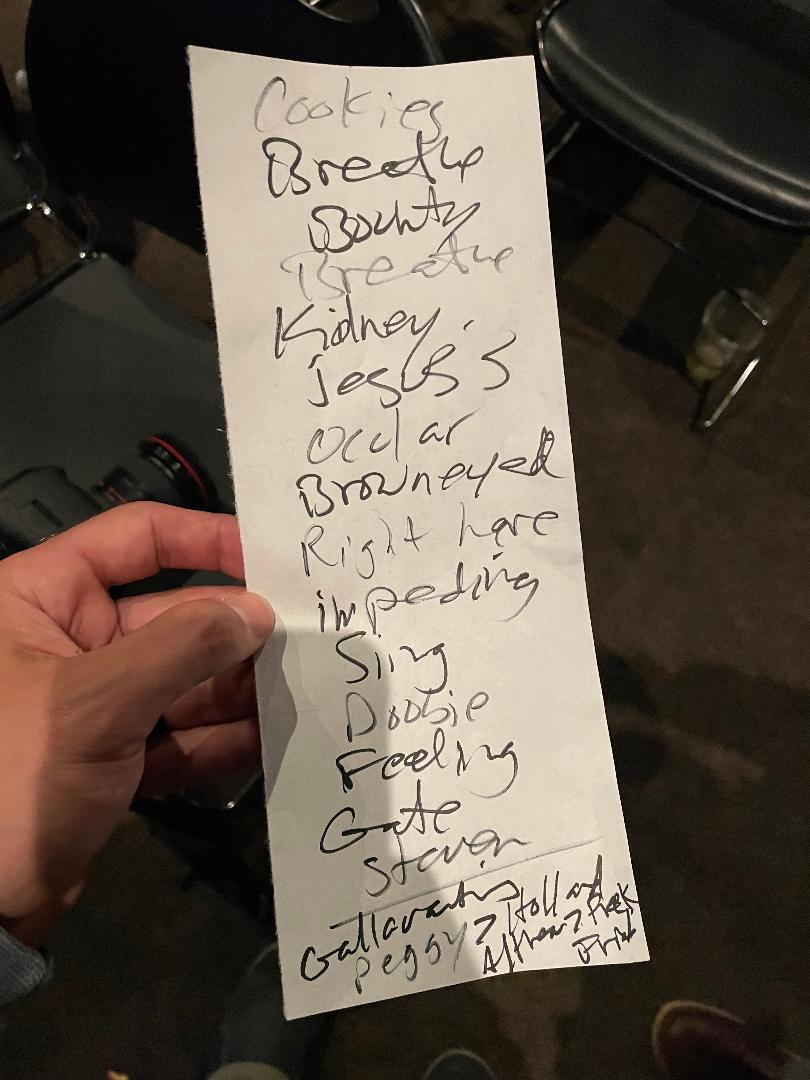 Cookies
Breathe
Bounty
Breathe
Kidney.
Jesus's
Ocular
Browneyed
Right here
impeding
Sing
Doobie
Feeling
Gate
Steven
Peggy > Holland